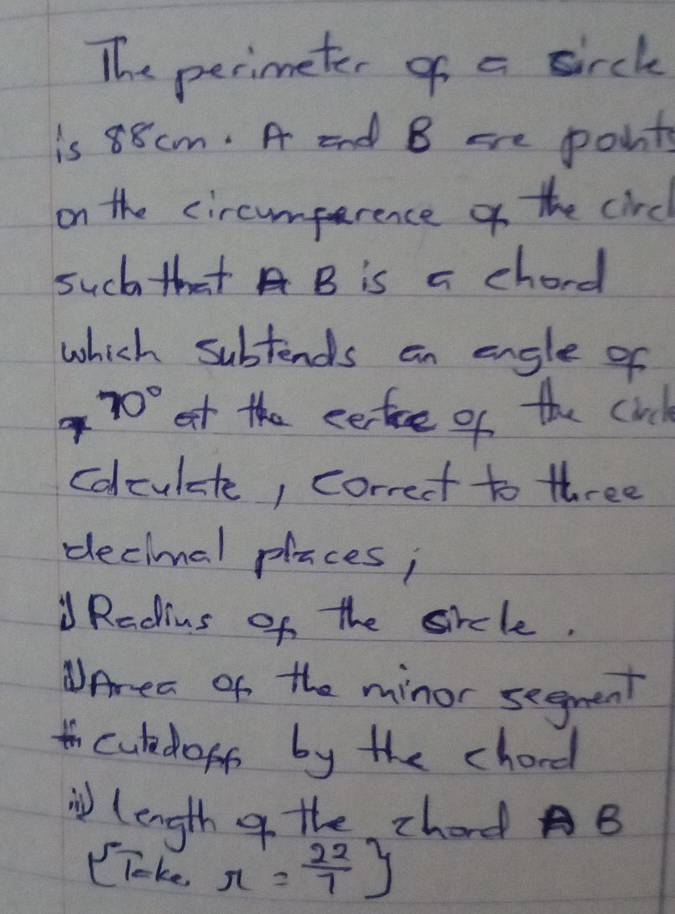 The perimeter of a circle
is 88cm. A and B are points
on the circumference of the circl
such that A B is a chord
which subtends an angle of
70° at the centre of the circle
Calculate, correct to three
decimal places;
i) Radius of the circle.
ii) Area of the minor segment
cutedoff by the chord
iii) length of the chord A B
{Take π = 22/7}